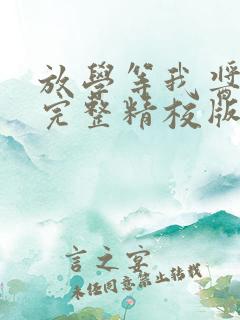 放學等我 醬
完整精校版
言之宴
未任同意禁止转载